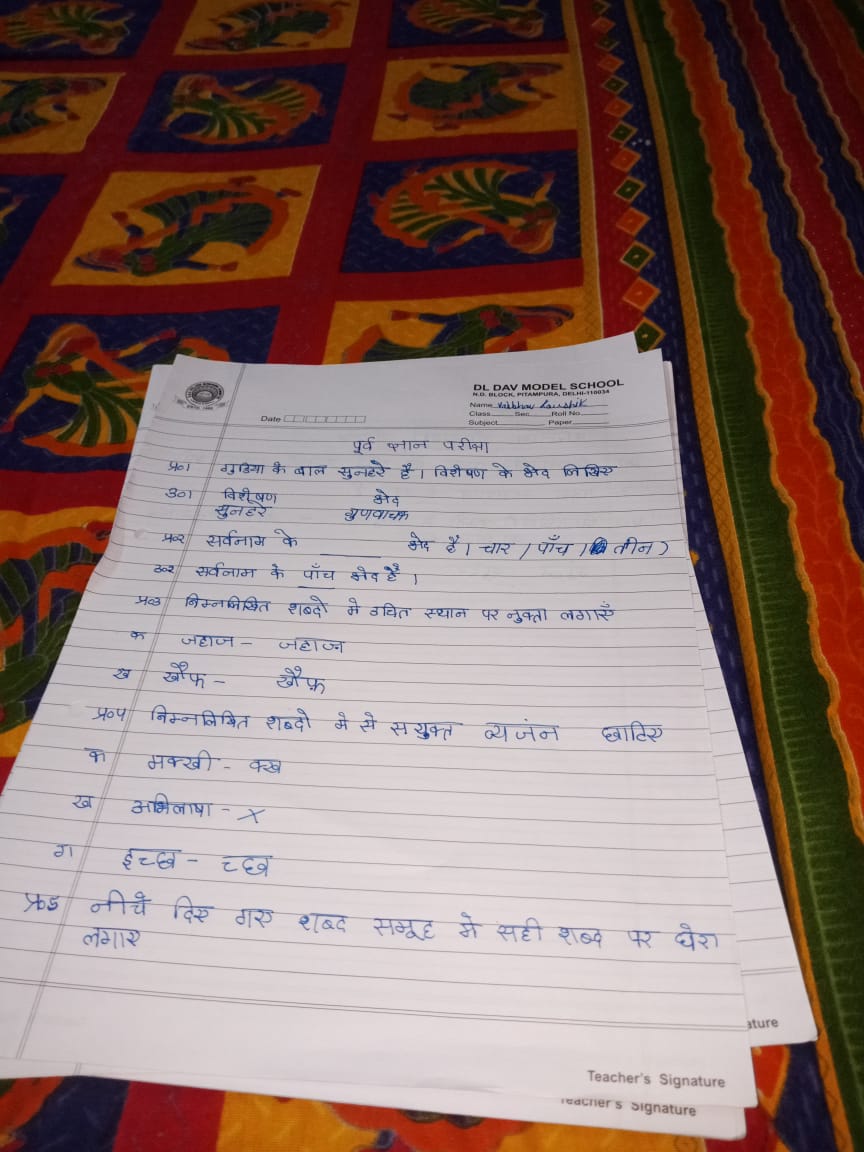 DL DAV MODEL SCHOOL
N.D. BLOCK, PITAMPURA, DELHI-110034
Name Vaibhav Kaushik
Class Sec. Roll No.
Date
Subject Paper
पूर्व ज्ञान परीक्षा
प्र०1 गुडिया के बाल सुनहरे है। विशेषण के भेद लिखिए
उ०1 विशेषण भेद
सुनहरे गुणवाचक
प्र०२ सर्वनाम के ______ भेद है। चार / पाँच / तीन )
उ०२ सर्वनाम के पाँच भेद है।
प्र०३ निम्नलिखित शब्दो मे उचित स्थान पर नुक्ता लगाएँ
क जहाज – जहाज़
ख खौफ – खौफ़
प्र०४ निम्नलिखित शब्दो मे से सयुक्त व्यजंन छाटिए
क मक्खी – क्ख
ख अभिलाषा – X
ग इच्छ – च्छ
प्र०5 नीचे दिए गए शब्द समूह मे सही शब्द पर घेरा
लगाए
ature
Teacher's Signature
Teacher's Signature